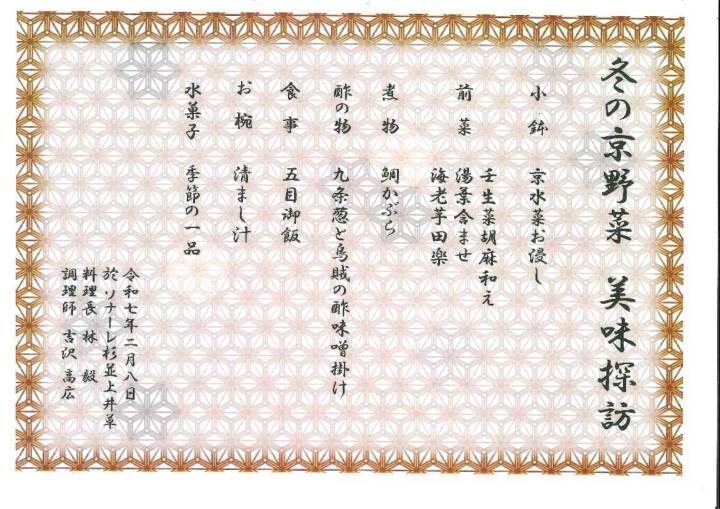 冬の京野菜 美味探訪
小鉢 京水菜お浸し
前菜 壬生菜胡麻和え
湯葉含ませ
海老芋田楽
煮物 鯛かぶら
酢の物 九条葱と烏賊の酢味噌掛け
食事 五目御飯
お椀 清まし汁
水菓子 季節の一品
令和七年二月八日
於ソナーレ杉並上井草
料理長 林 毅
調理師 吉沢 高広